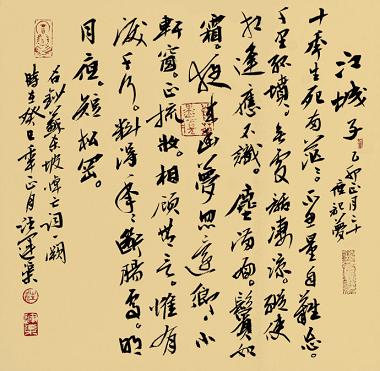 江城子
乙卯正月二十
日夜記夢
十年生死兩茫々。不思量自難忘。
千里孤墳。無處話淒涼。縱使
相逢應不識。塵滿面。鬢如
霜。夜來幽夢忽還鄉。小
軒窗。正梳妝。相顧無言。惟有
淚千行。料得年々斷腸處。明
月夜。短松岡。
右鈔蘇東坡悼亡詞一闋
時在癸巳年正月